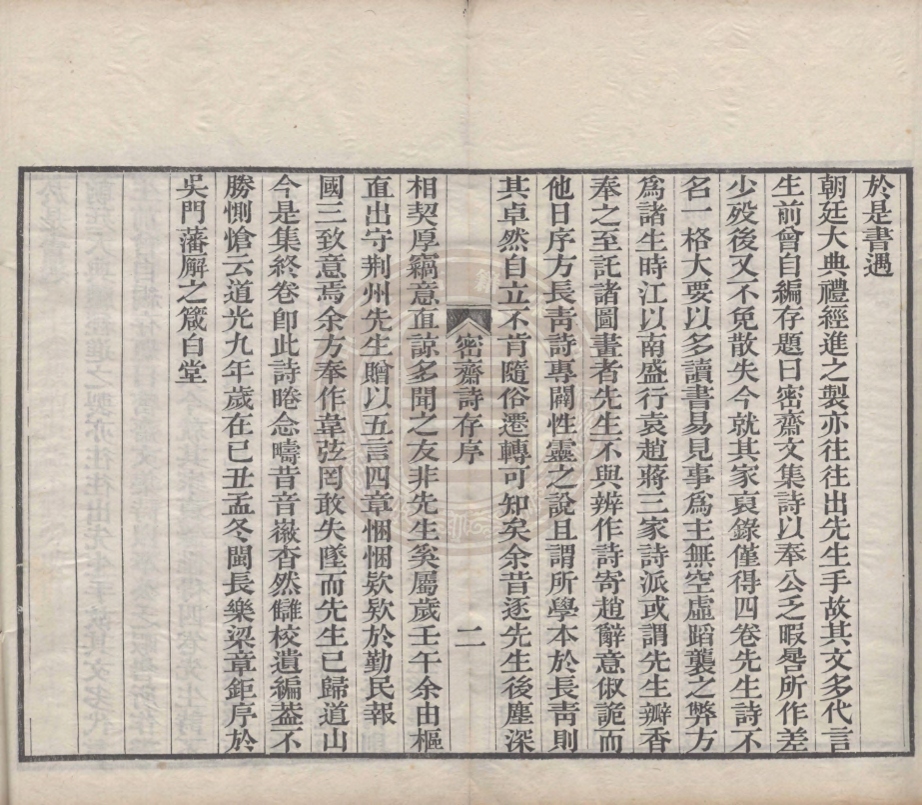 於是書遇
朝廷大典禮經進之製亦往往出先生手故其文多代言
生前曾自編存題曰密齋文集詩以奉公乏暇晷所作差
少歿後又不免散失今就其家裒錄僅得四卷先生詩不
名一格大要以多讀書易見事爲主無空虛蹈襲之弊方
爲諸生時江以南盛行袁趙蔣三家詩派或謂先生瓣香
奉之至託諸圖畫者先生不與辨作詩寄趙辭意俶詭而
他日序方長靑詩專闢性靈之說且謂所學本於長靑則
其卓然自立不肯隨俗遷轉可知矣余昔逐先生後塵深
密齋詩存序 二
相契厚竊意直諒多聞之友非先生奚屬歲壬午余由樞
直出守荆州先生贈以五言四章悃悃欵欵於勤民報
國三致意焉余方奉作韋弦罔敢失墜而先生已歸道山
今是集終卷卽此詩睠念疇昔音徽杳然讎校遺編葢不
勝惻愴云道光九年歲在己丑孟冬閩長樂梁章鉅序於
吳門藩廨之箴白堂